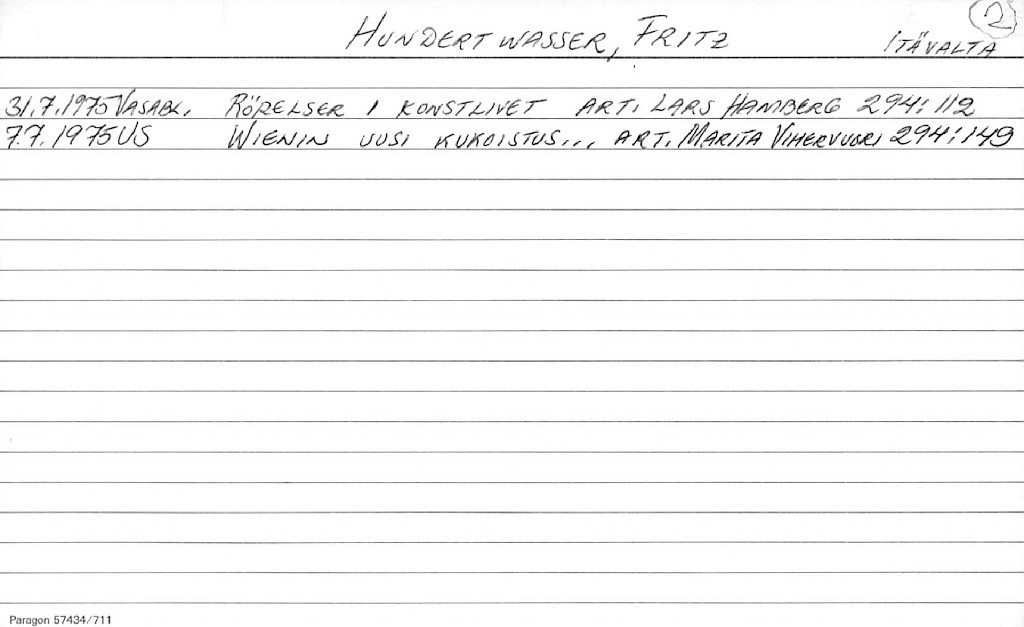 2
HUNDERTWASSER, FRITZ ITÄVALTA
31.7.1975 VASABL. RÖRELSER I KONSTLIVET ART. LARS HAMBERG 294:112
7.7.1975 US WIENIN UUSI KUKOISTUS... ART. MARITA VIHERVUORI 294:149
Paragon 57434/711